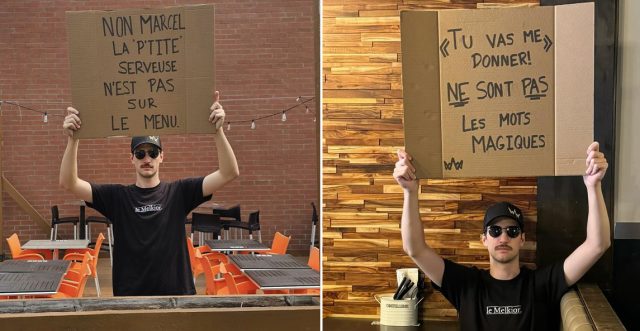 NON MARCEL
LA P'TITE
SERVEUSE
N'EST PAS
SUR
LE MENU.
le Melkior.
«TU VAS ME»
DONNER!
NE SONT PAS
LES MOTS
MAGIQUES
le Melkior.